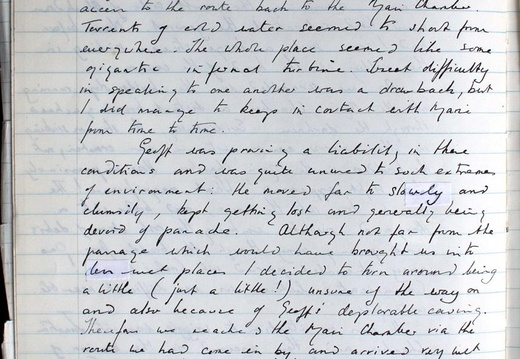 access to the route back to the Main Chamber.
Torrents of cold water seemed to shoot from
everywhere. The whole place seemed like some
gigantic infernal turbine. Great difficulty
in speaking to one another was a drawback, but
I did manage to keep in contact with Marie
from time to time.
Geoff was proving a liability in these
conditions and was quite unused to such extremes
of environment: He moved far to slowly and
clumsily, kept getting lost and generally being
devoid of panache. Although not far from the
passage which would have brought us into
less wet places I decided to turn around being
a little (just a little!) unsure of the way on
and also because of Geoff's deplorable caving.
Therefore we reached the Main Chamber via the
route we had come in by and arrived very wet